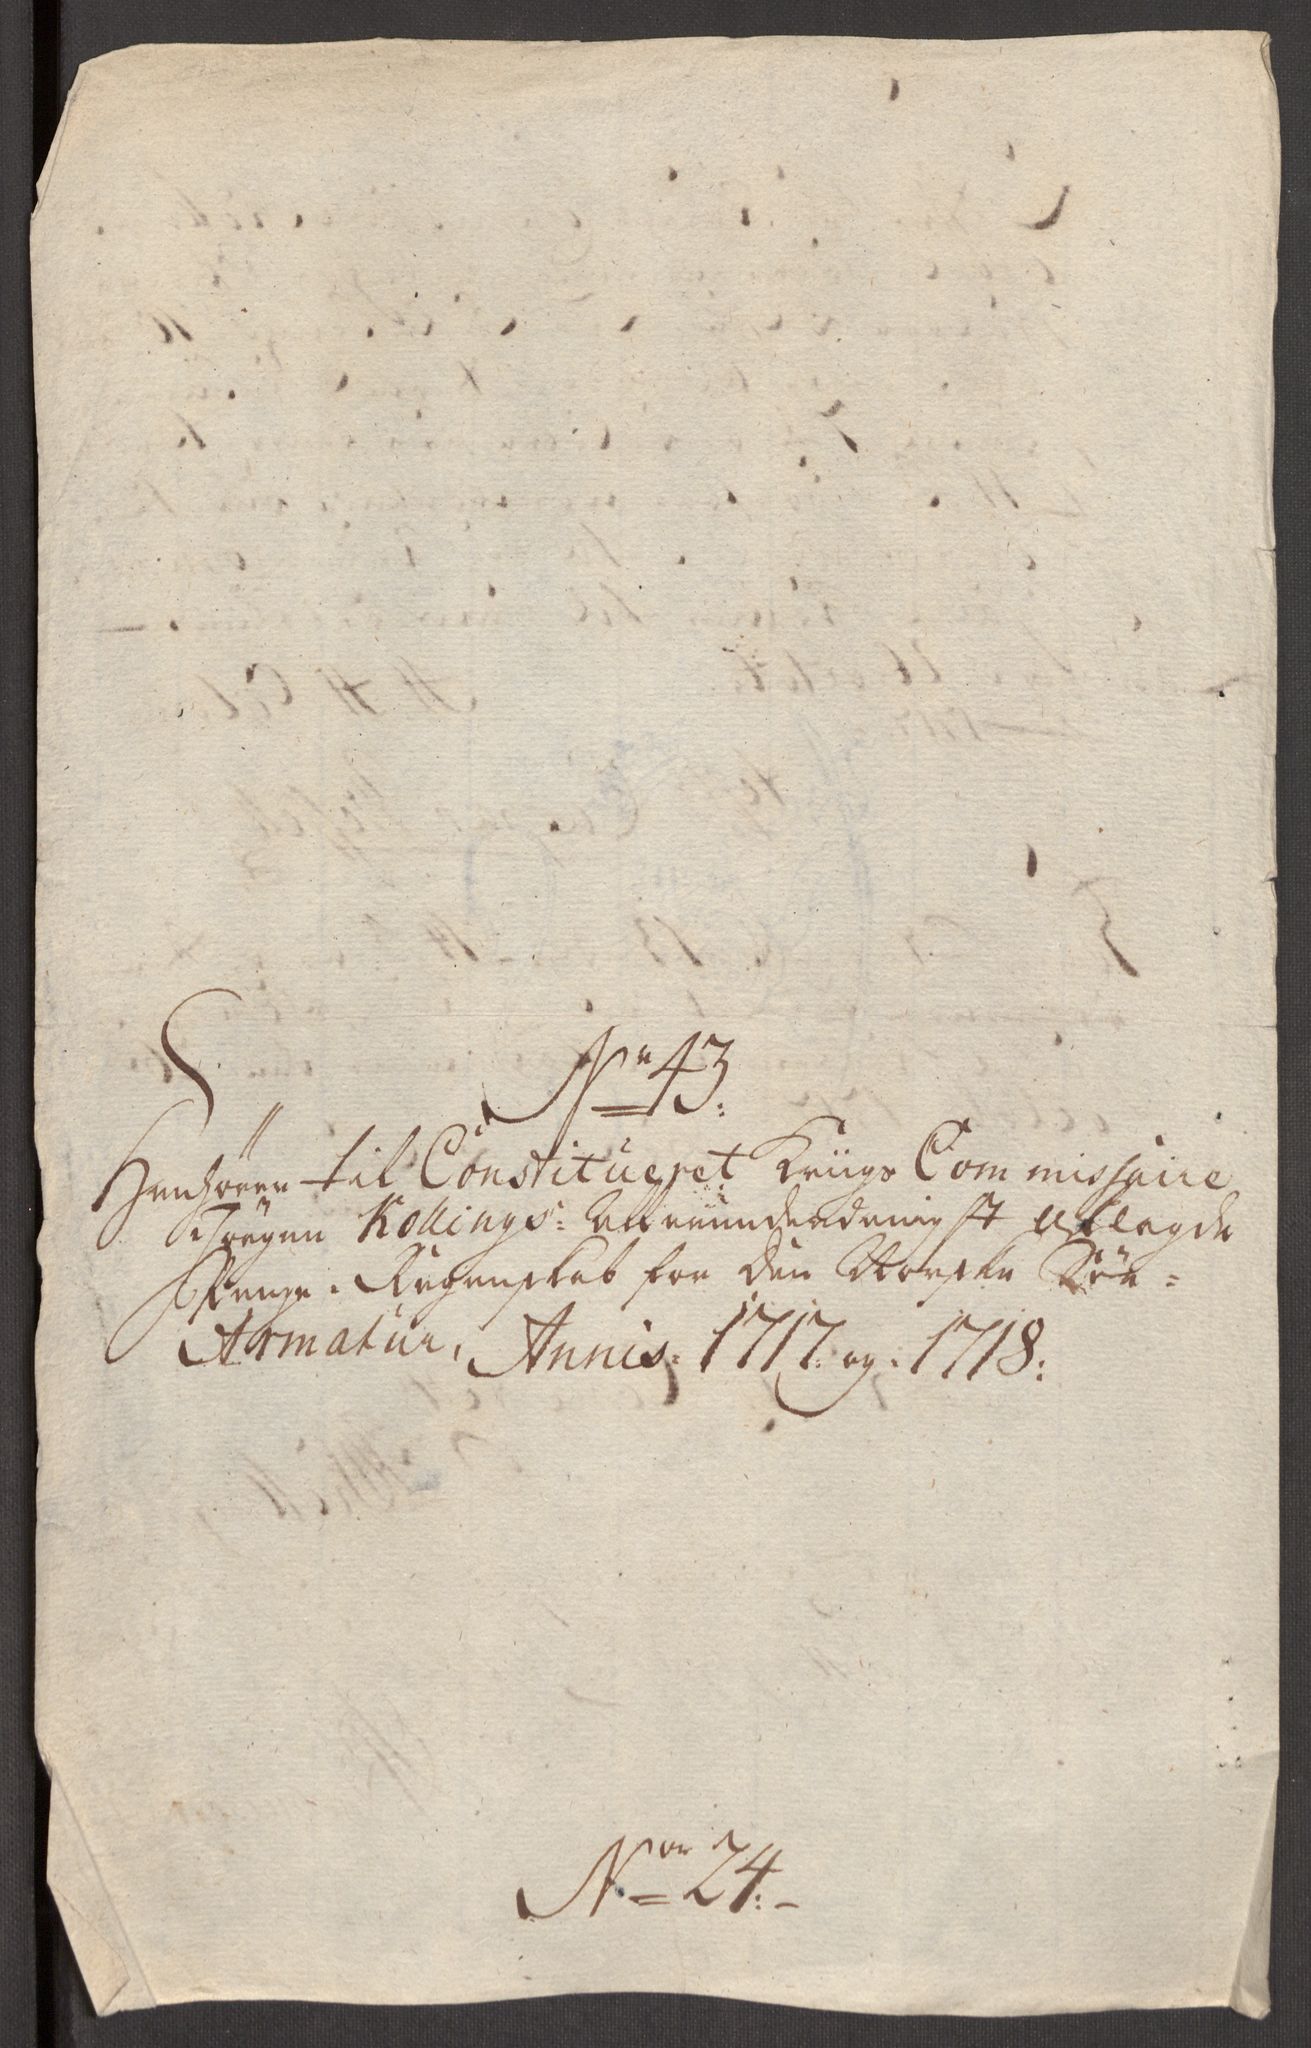 Nr 43.
Henhörer til Constitueret Kriigs Commissaire
Jörgen Kollings: allerunderdanigst aflagde
Penge-Regenskab for den Norske Söe=
Armatur, Annis. 1717. og. 1718:
Nor 24:-